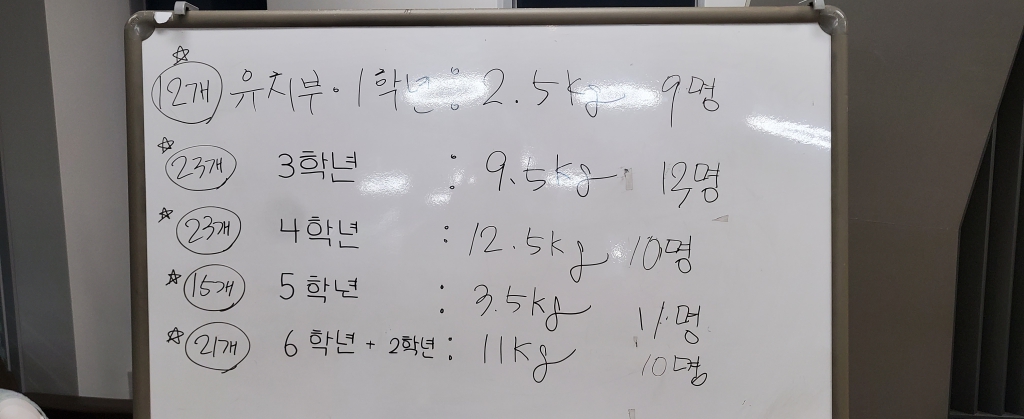 ☆ 12개 유치부·1학년 : 2.5kg 9명
☆ 23개 3학년 : 9.5kg 명
☆ 23개 4학년 : 12.5kg 10명
☆ 15개 5학년 : 3.5kg 11명
☆ 21개 6학년 + 2학년 : 11kg 10명